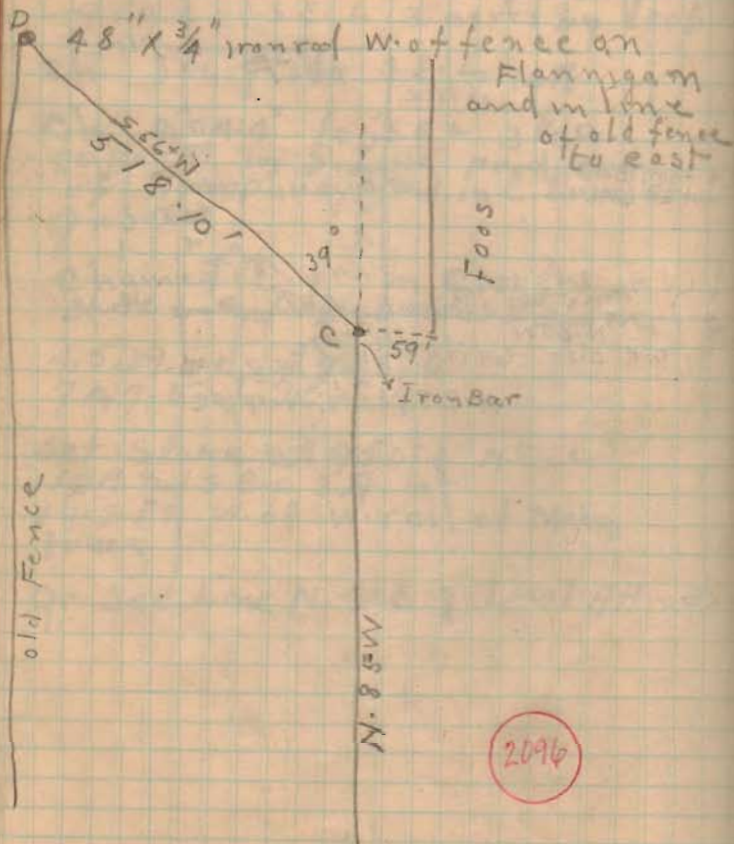 D 48" X 3/4" iron rod W. of fence on
Flannigam
and in line
of old fence
to east
518.10'
39°
Foos
C
59'
Iron Bar
old Fence
2096